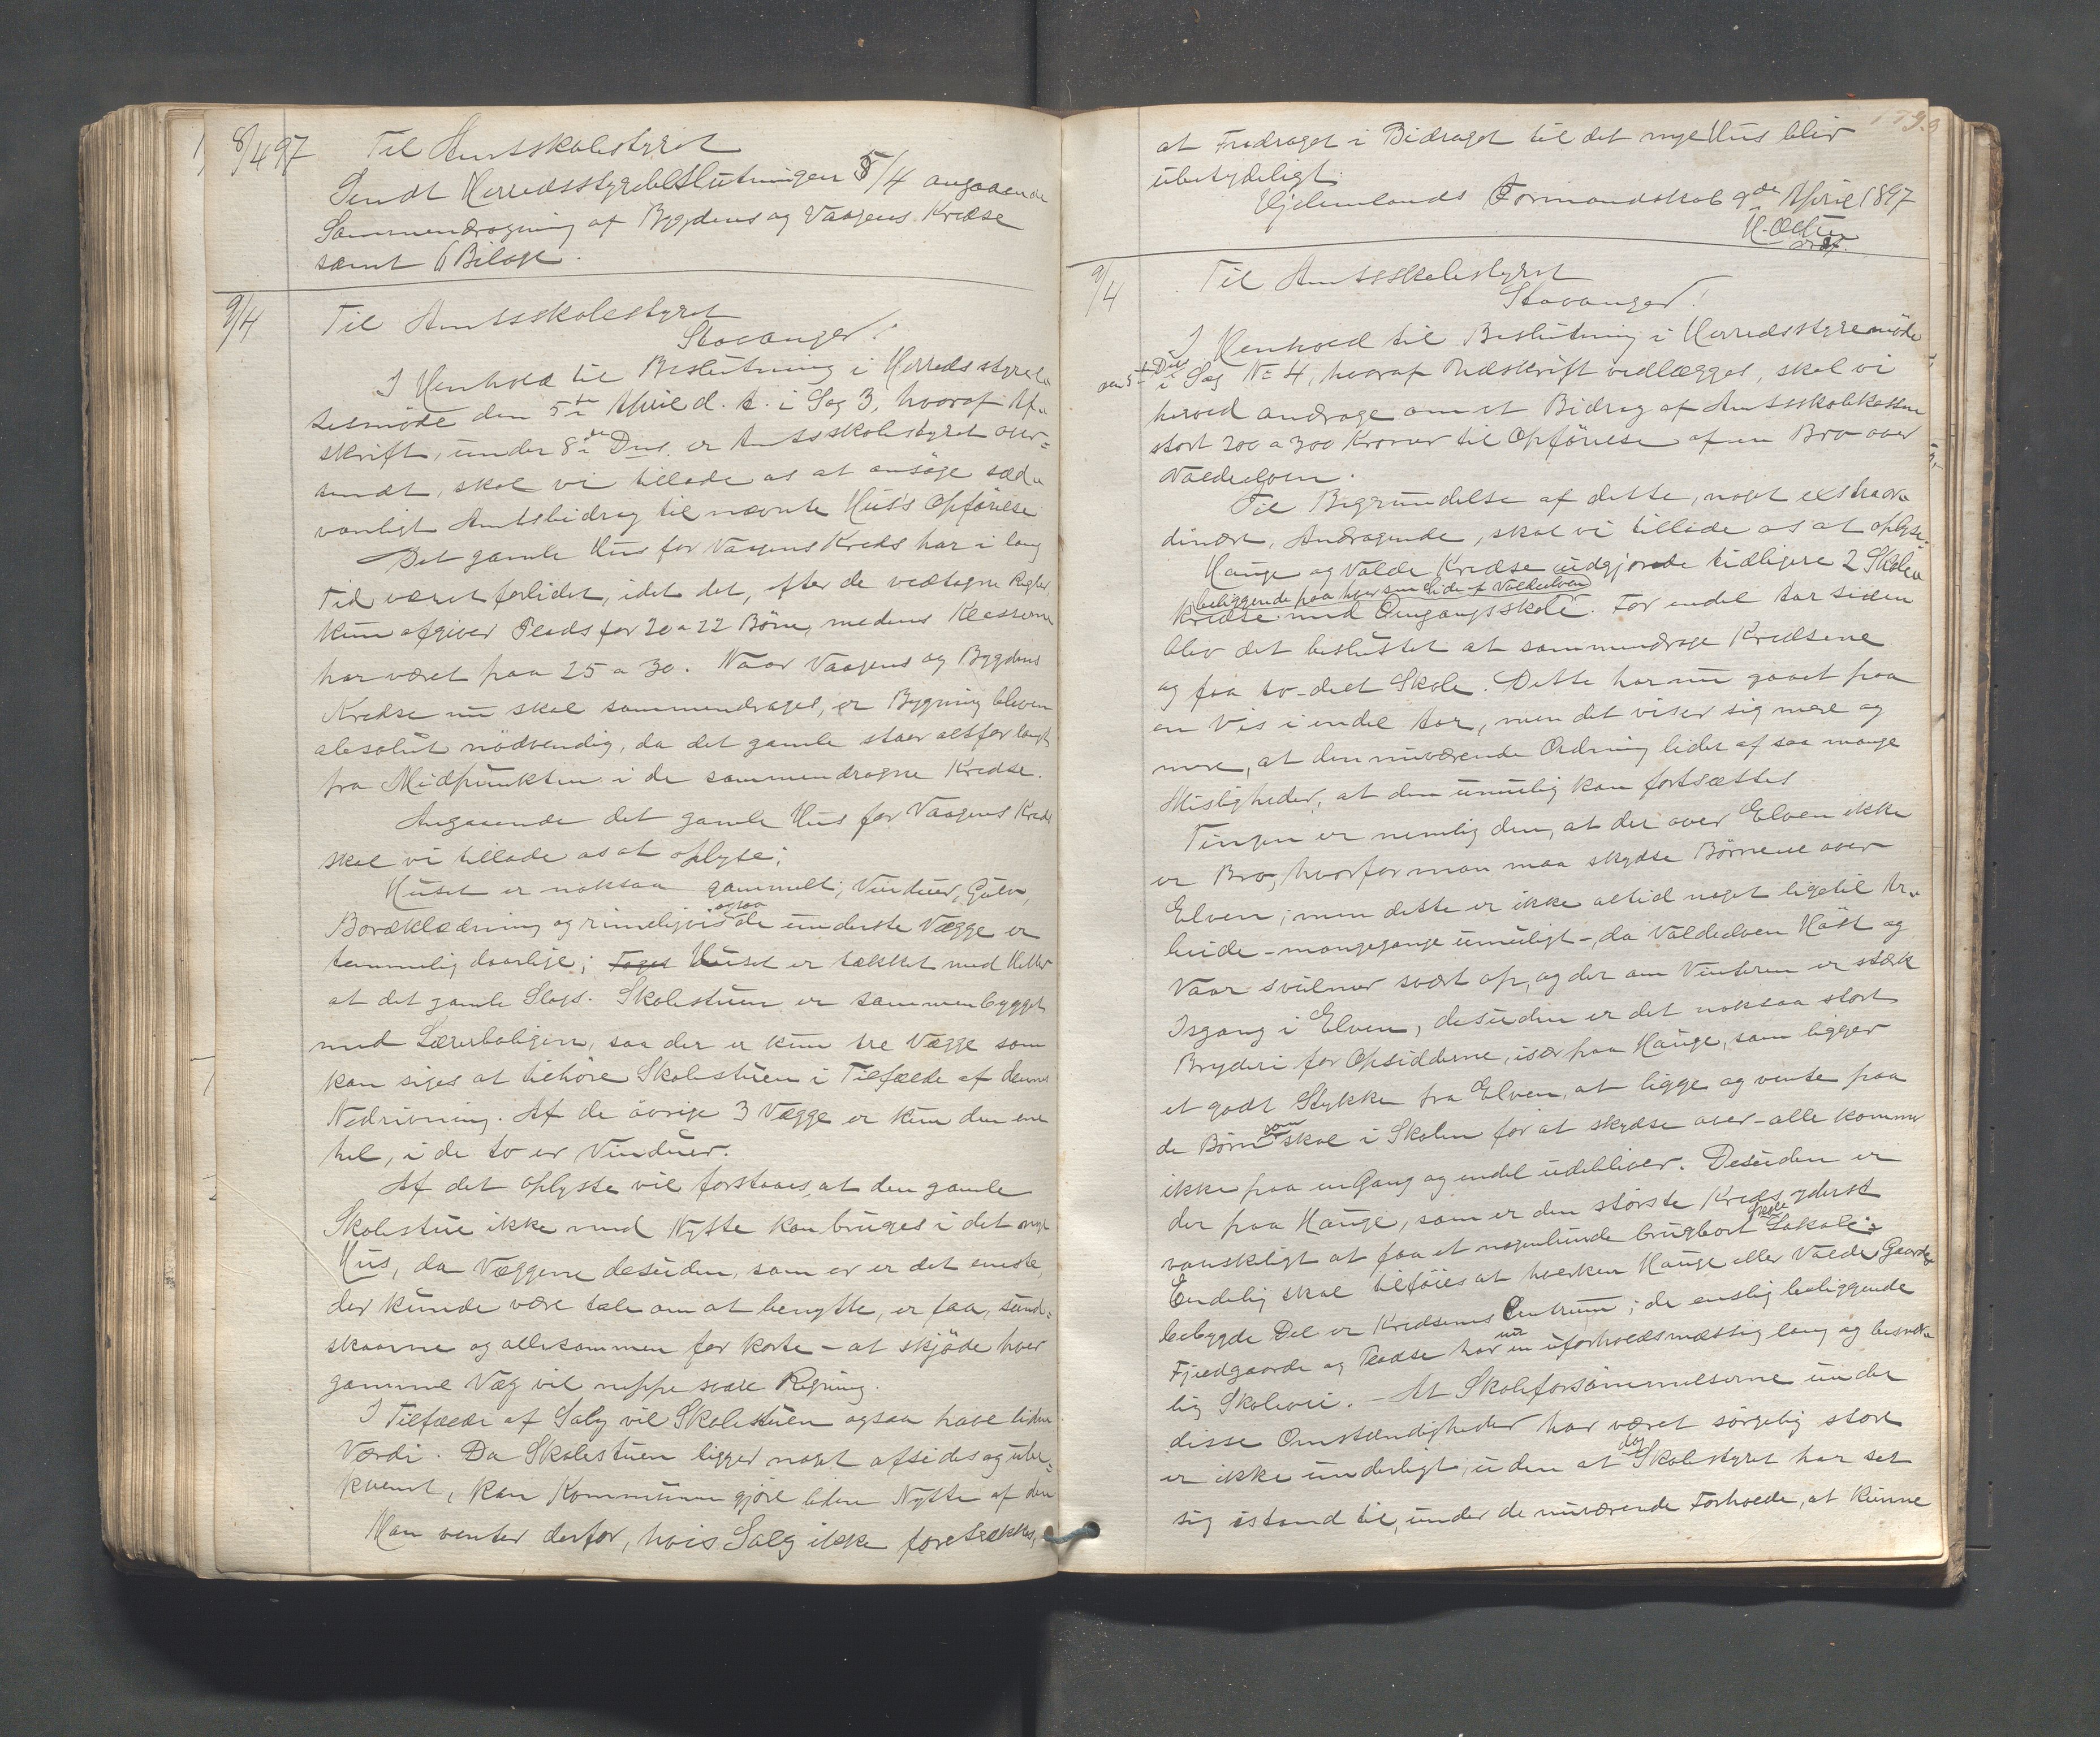 8/4 97 Til Amtsskolestyret
Sendt Herredsstyrebeslutningen 5/4 angaaende
Sammendragning af Bygdens og Vaagens Kredse
samt 6 Bilage.
9/4 Til Amtsskolestyret
Stavanger!
I Henhold til Beslutning i Herredsstyrel-
sesmöde den 5te April d. A. i Sag 3, hvoraf Af-
skrift, under 8de Dns. er Amtsskolestyret over-
sendt, skal vi tillade os at ansöge sæd-
vanligt Amtsbidrag til nævnte Hus's Opförelse
Det gamle Hus for Vaagens Kreds har i lang
Tid været forlidet, idet det, efter de vedtagne Regler
kun afgiver Plads for 20 a 22 Börn, medens Klasserne
har været paa 25 a 30. Naar Vaagens og Bygdens
Kredse nu skal sammendrages, er Bygning bleven
absolut nödvendig, da det gamle staar altfor langt
fra Midpunkten i de sammendragne Kredse.
Angaaende det gamle Hus for Vaagens Kreds
skal vi tillade os at oplyse:
Huset er noksaa gammelt; Vinduer, Gulv,
Bordklædning og rimeligvis ogsaa de underste Vægge er
temmelig daarlige; Taget Huset er tækket med Heller
at det gamle Slags. Skolestuen er sammenbygget
med Lærerboligen, saa der er kun tre Vægge som
kan siges at tilhöre Skolestuen i Tilfælde af dennes
Nedrivning. Af de övrige 3 Vægge er kun den ene
hel, i de to er Vinduer.
Af det oplyste vil forstaaes, at den gamle
Skolestue ikke med Nytte kan bruges i det nye
Hus, da Væggene desuden, som er er det eneste,
der kunde være tale om at benytte, er faa, sund-
skaarne og allesammen for korte – at skjöde hver
gammel Væg vil neppe svare Regning.
I Tilfælde af Salg vil Skolestuen ogsaa have liden
Værdi. Da Skolestuen ligger noget afsides og ube-
kvemt, kan Kommunen gjöre liden Nytte af den
Man venter derfor, hvis Salg ikke foretrækkes,
at Fradraget i Bidraget til det nye Hus bliver
ubetydeligt.
Hjelmelands Formandskab 9de April 1897
ordf.
9/4 Til Amtsskolestyret
Stavanger!
I Henhold til Beslutning i Herredsstyremöde
den 5te Dns i Sag № 4, hvoraf Udskrift vedlægges, skal vi
herved andrage om et Bidrag af Amtsskolekassen
stort 200 a 300 Kroner til Opförelse af en Bro over
Valdeelven.
Til Begrundelse af dette, noget extraor-
dinært, Andragende, skal vi tillade os at oplyse:
Hauge og Valde Kredse udgjorde tidligere 2 Skole-
beliggende paa hver sin Side af Valdeelven
kredse med Omgangsskole. For endel Aar siden
blev det besluttet at sammendrage Kredsene
og faa to-delt Skole. Dette har nu gaaet paa
en Vis i endel Aar, men det viser sig mere og
mere, at den nuværende Ordning lider af saa mange
Misligheder, at den umulig kan fortsættes
Tingen er nemlig den, at der over Elven ikke
er Bro, hvorfor man maa skydse Börnene over
Elven; men dette er ikke altid noget ligetil Ar-
beide – mangegange umuligt –, da Valdeelven Höst og
Vaar svulmer svært op, og der om Vinteren er stærk
Isgang i Elven, desuden er det noksaa stort
Bryderi for Opsidderne, især paa Hauge, som ligger
et godt Stykke fra Elven, at ligge og vente paa
de Börn som skal i Skolen for at skydse over – alle kommer
ikke paa en Gang og endel udebliver. Desuden er
der paa Hauge, som er den største Kreds, yderst
vanskeligt at faa et nogenlunde brugbart Skole Lokale.
Endelig skal tilföies at hverken Hauge eller Valde Gaards
bebygde Del er Kredsens Centrum; de enslig beliggende
Fjeldgaarde og Pladse har nu en uforholdsmæssig lang og besvær-
lig Skolevei. – At Skoleforsömmelserne under
disse Omstændigheder har været sörgelig store
er ikke underligt, uden at dog Skolestyret har set
sig istand til, under de nuværende Forholde, at kunne